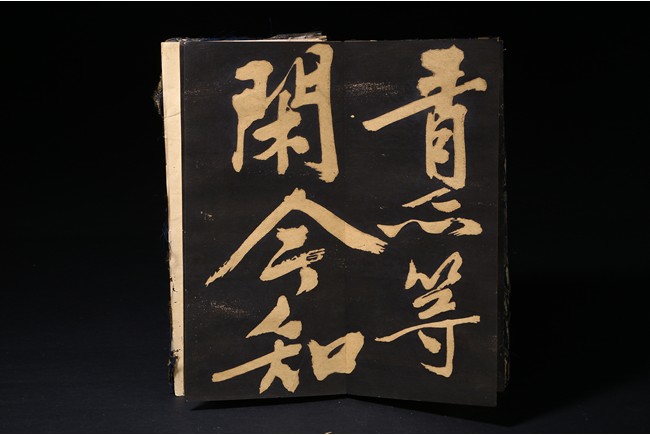 青亦等
閑今知